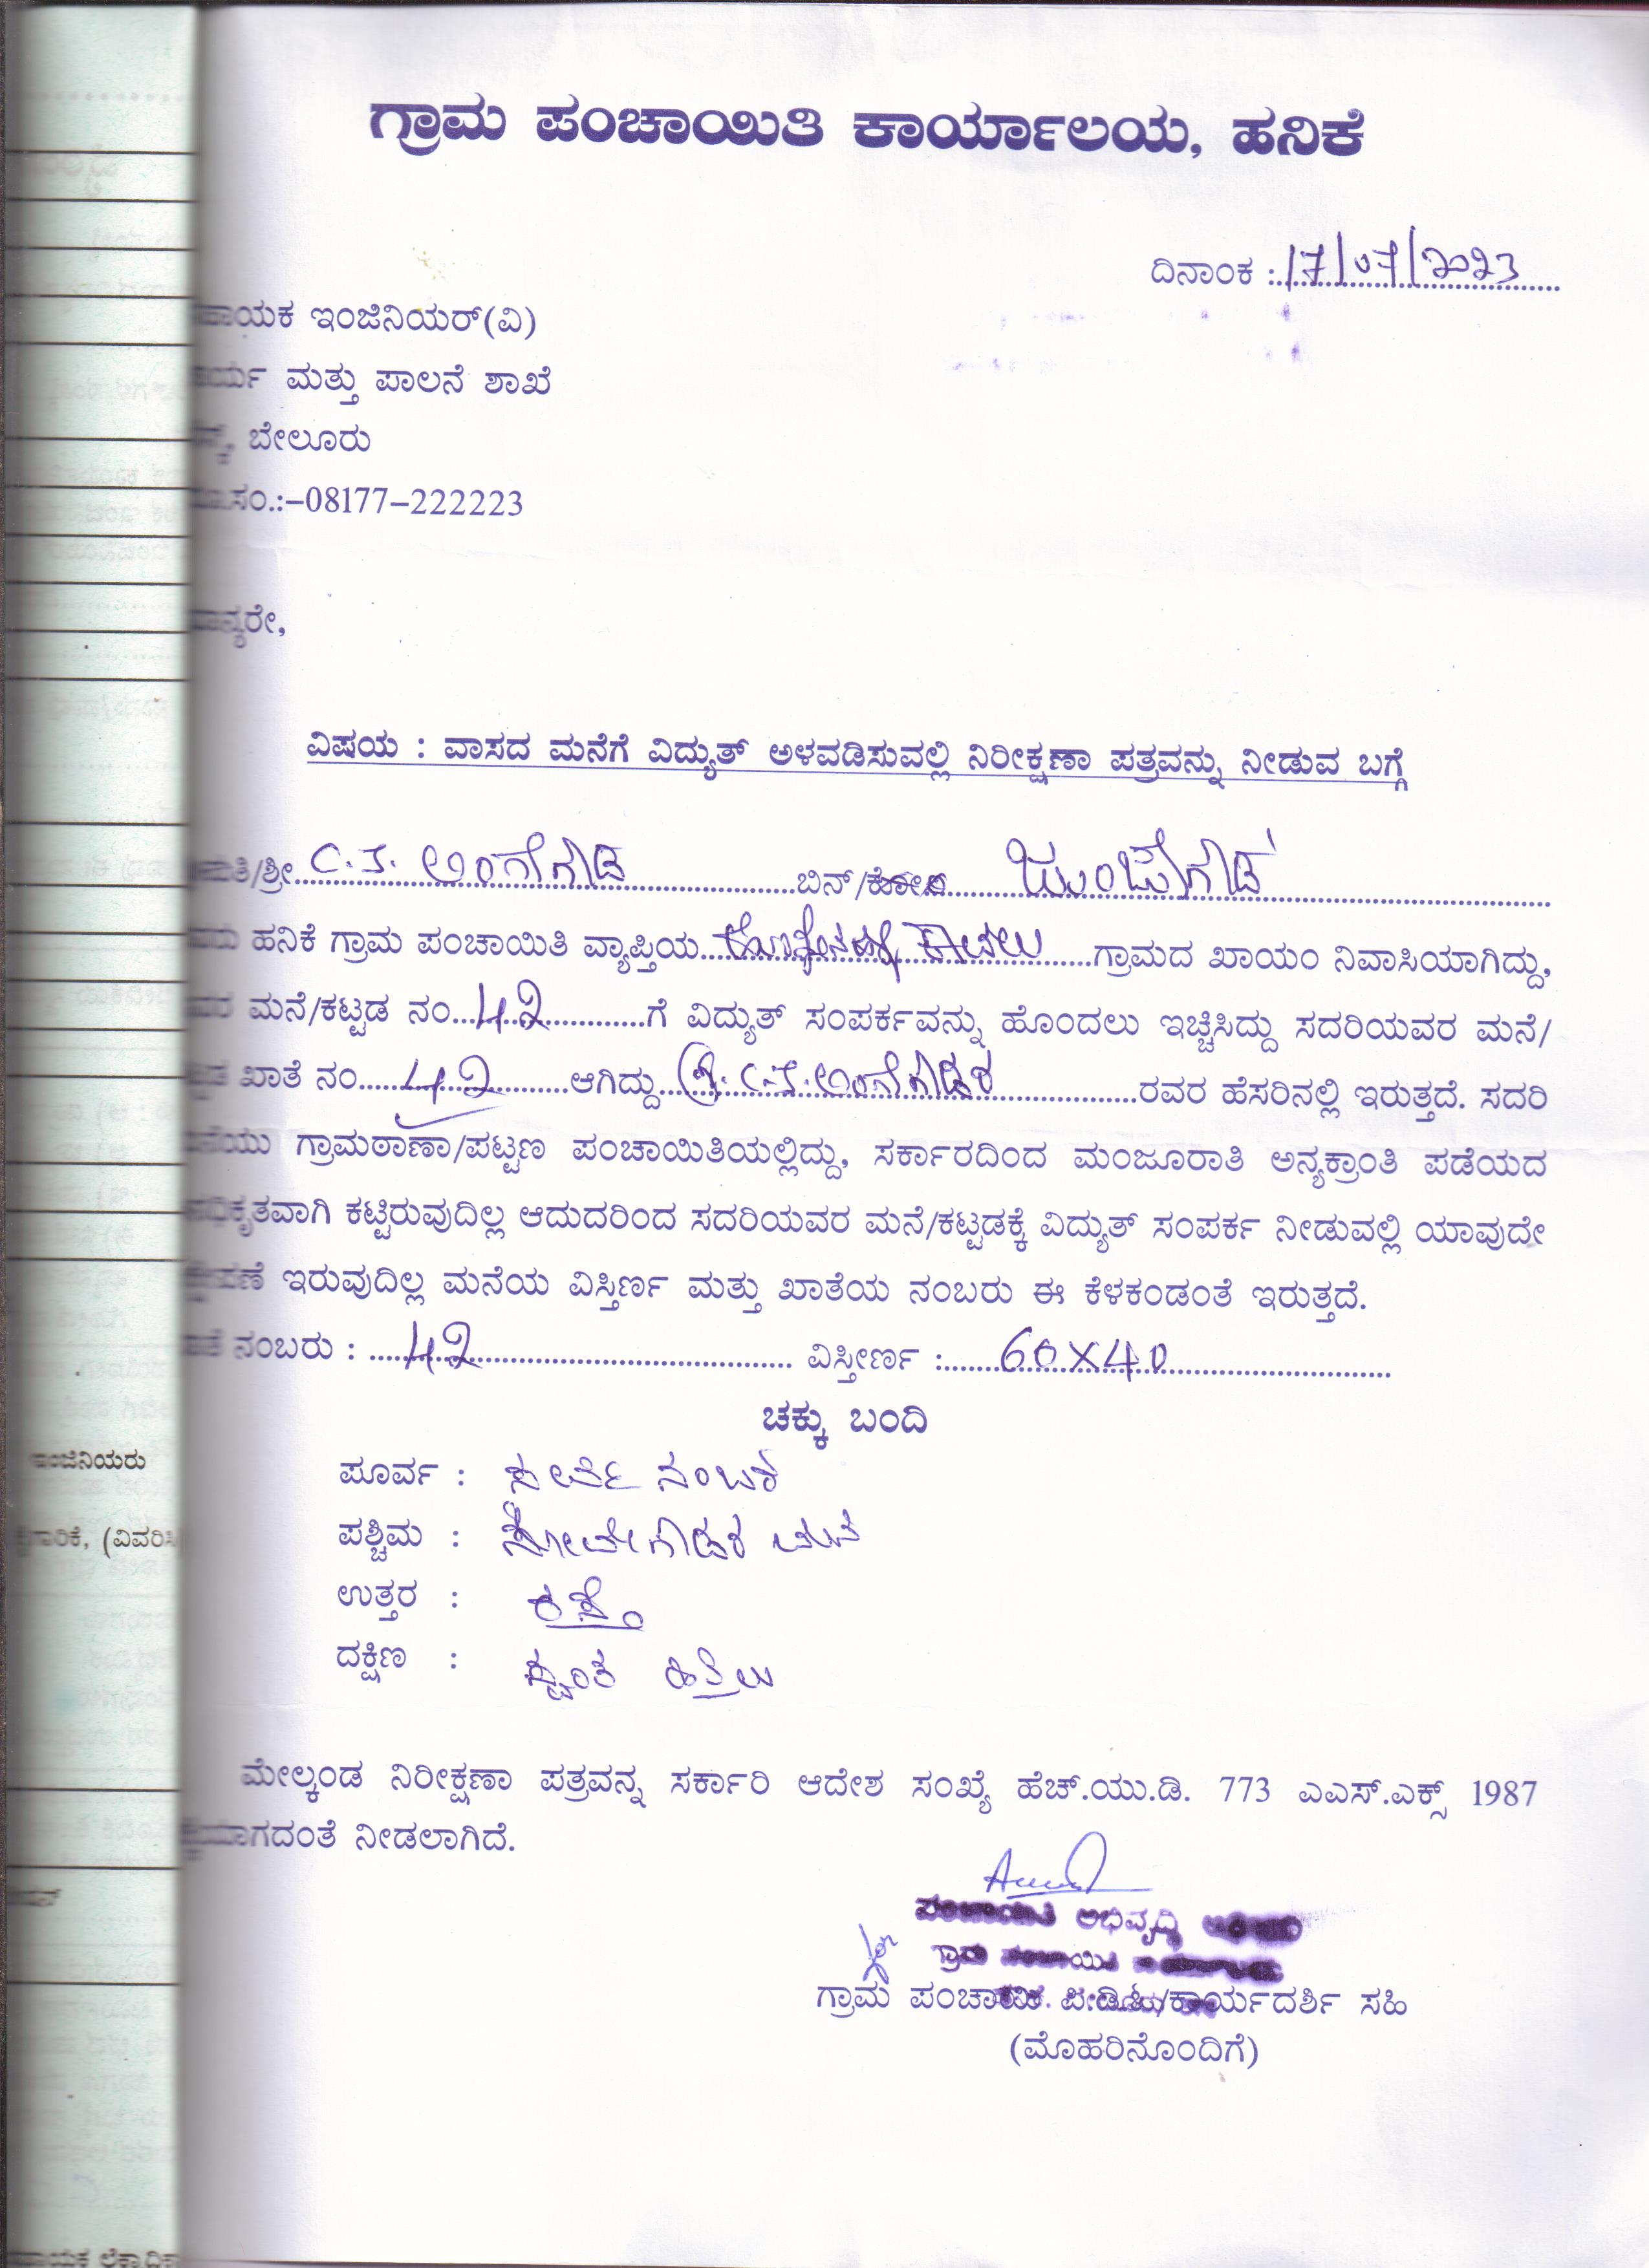 ಗ್ರಾಮ ಪಂಚಾಯಿತಿ ಕಾರ್ಯಾಲಯ, ಹನಿಕೆ
ದಿನಾಂಕ : 17/07/2023
ಹಾಯಕ ಇಂಜಿನಿಯರ್(ವಿ)
ರ್ಯ ಮತ್ತು ಪಾಲನೆ ಶಾಖೆ
ಬೇಲೂರು
ಸಂ.:–08177–222223
ಮಾನ್ಯರೇ,
ವಿಷಯ : ವಾಸದ ಮನೆಗೆ ವಿದ್ಯುತ್ ಅಳವಡಿಸುವಲ್ಲಿ ನಿರೀಕ್ಷಣಾ ಪತ್ರವನ್ನು ನೀಡುವ ಬಗ್ಗೆ
ಮತಿ/ಶ್ರೀ C.J. ಬಿನ್/ಕೋಂ
ಹನಿಕೆ ಗ್ರಾಮ ಪಂಚಾಯಿತಿ ವ್ಯಾಪ್ತಿಯ ಕಾವಲು ಗ್ರಾಮದ ಖಾಯಂ ನಿವಾಸಿಯಾಗಿದ್ದು,
ಮನೆ/ಕಟ್ಟಡ ನಂ 42 ಗೆ ವಿದ್ಯುತ್ ಸಂಪರ್ಕವನ್ನು ಹೊಂದಲು ಇಚ್ಛಿಸಿದ್ದು ಸದರಿಯವರ ಮನೆ/
ಖಾತೆ ನಂ 42 ಆಗಿದ್ದು ಶ್ರೀ. C.J. ರವರ ಹೆಸರಿನಲ್ಲಿ ಇರುತ್ತದೆ. ಸದರಿ
ನೆಯು ಗ್ರಾಮಠಾಣಾ/ಪಟ್ಟಣ ಪಂಚಾಯಿತಿಯಲ್ಲಿದ್ದು, ಸರ್ಕಾರದಿಂದ ಮಂಜೂರಾತಿ ಅನ್ಯಕ್ರಾಂತಿ ಪಡೆಯದ
ಧಿಕೃತವಾಗಿ ಕಟ್ಟಿರುವುದಿಲ್ಲ ಆದುದರಿಂದ ಸದರಿಯವರ ಮನೆ/ಕಟ್ಟಡಕ್ಕೆ ವಿದ್ಯುತ್ ಸಂಪರ್ಕ ನೀಡುವಲ್ಲಿ ಯಾವುದೇ
ಪಣೆ ಇರುವುದಿಲ್ಲ ಮನೆಯ ವಿಸ್ತೀರ್ಣ ಮತ್ತು ಖಾತೆಯ ನಂಬರು ಈ ಕೆಳಕಂಡಂತೆ ಇರುತ್ತದೆ.
ನಂಬರು : 42 ವಿಸ್ತೀರ್ಣ : 60X40
ಚಕ್ಕು ಬಂದಿ
ಪೂರ್ವ : ಸರ್ವೆ ನಂಬರ
ಪಶ್ಚಿಮ : ಸೋಮೇಗೌಡರ ಮನೆ
ಉತ್ತರ : ರಸ್ತೆ
ದಕ್ಷಿಣ : ಸ್ವಂತ ಹಿತ್ತಲು
ಮೇಲ್ಕಂಡ ನಿರೀಕ್ಷಣಾ ಪತ್ರವನ್ನ ಸರ್ಕಾರಿ ಆದೇಶ ಸಂಖ್ಯೆ ಹೆಚ್.ಯು.ಡಿ. 773 ಎಎಸ್.ಎಕ್ಸ್ 1987
ಯಾಗದಂತೆ ನೀಡಲಾಗಿದೆ.
ಪಂಚಾಯಿತಿ ಅಭಿವೃದ್ಧಿ
ಗ್ರಾಮ ಪಂಚಾಯಿತಿ
ಗ್ರಾಮ ಪಂಚಾಯಿತಿ ಪಿ.ಡಿ.ಓ/ಕಾರ್ಯದರ್ಶಿ ಸಹಿ
(ಮೊಹರಿನೊಂದಿಗೆ)
ಇಂಜಿನಿಯರು
(ವಿವರಿಸಿ